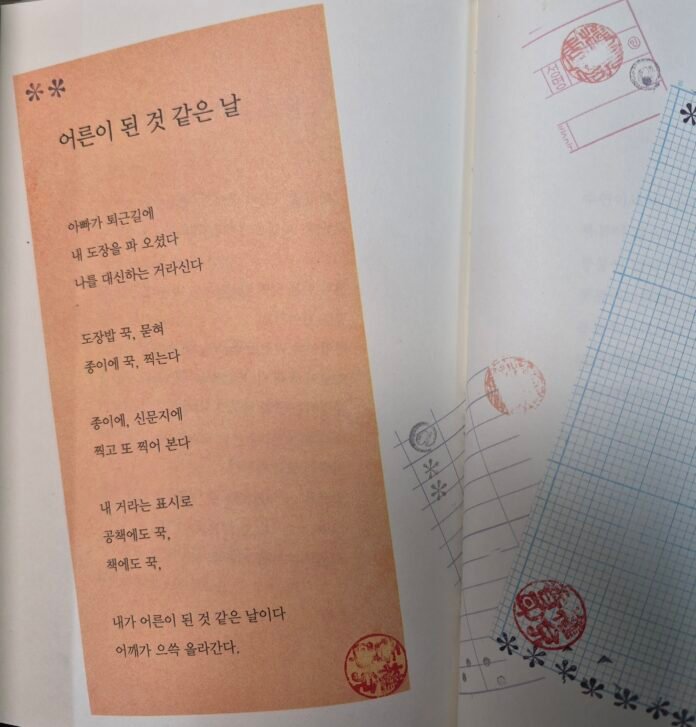 어른이 된 것 같은 날
아빠가 퇴근길에
내 도장을 파 오셨다
나를 대신하는 거라신다
도장밥 꾹, 묻혀
종이에 꾹, 찍는다
종이에, 신문지에
찍고 또 찍어 본다
내 거라는 표시로
공책에도 꾹,
책에도 꾹,
내가 어른이 된 것 같은 날이다
어깨가 으쓱 올라간다.